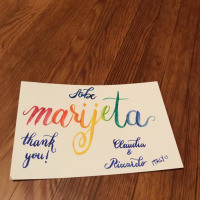 marijeta
thank you!
Claudia
&
Riccardo